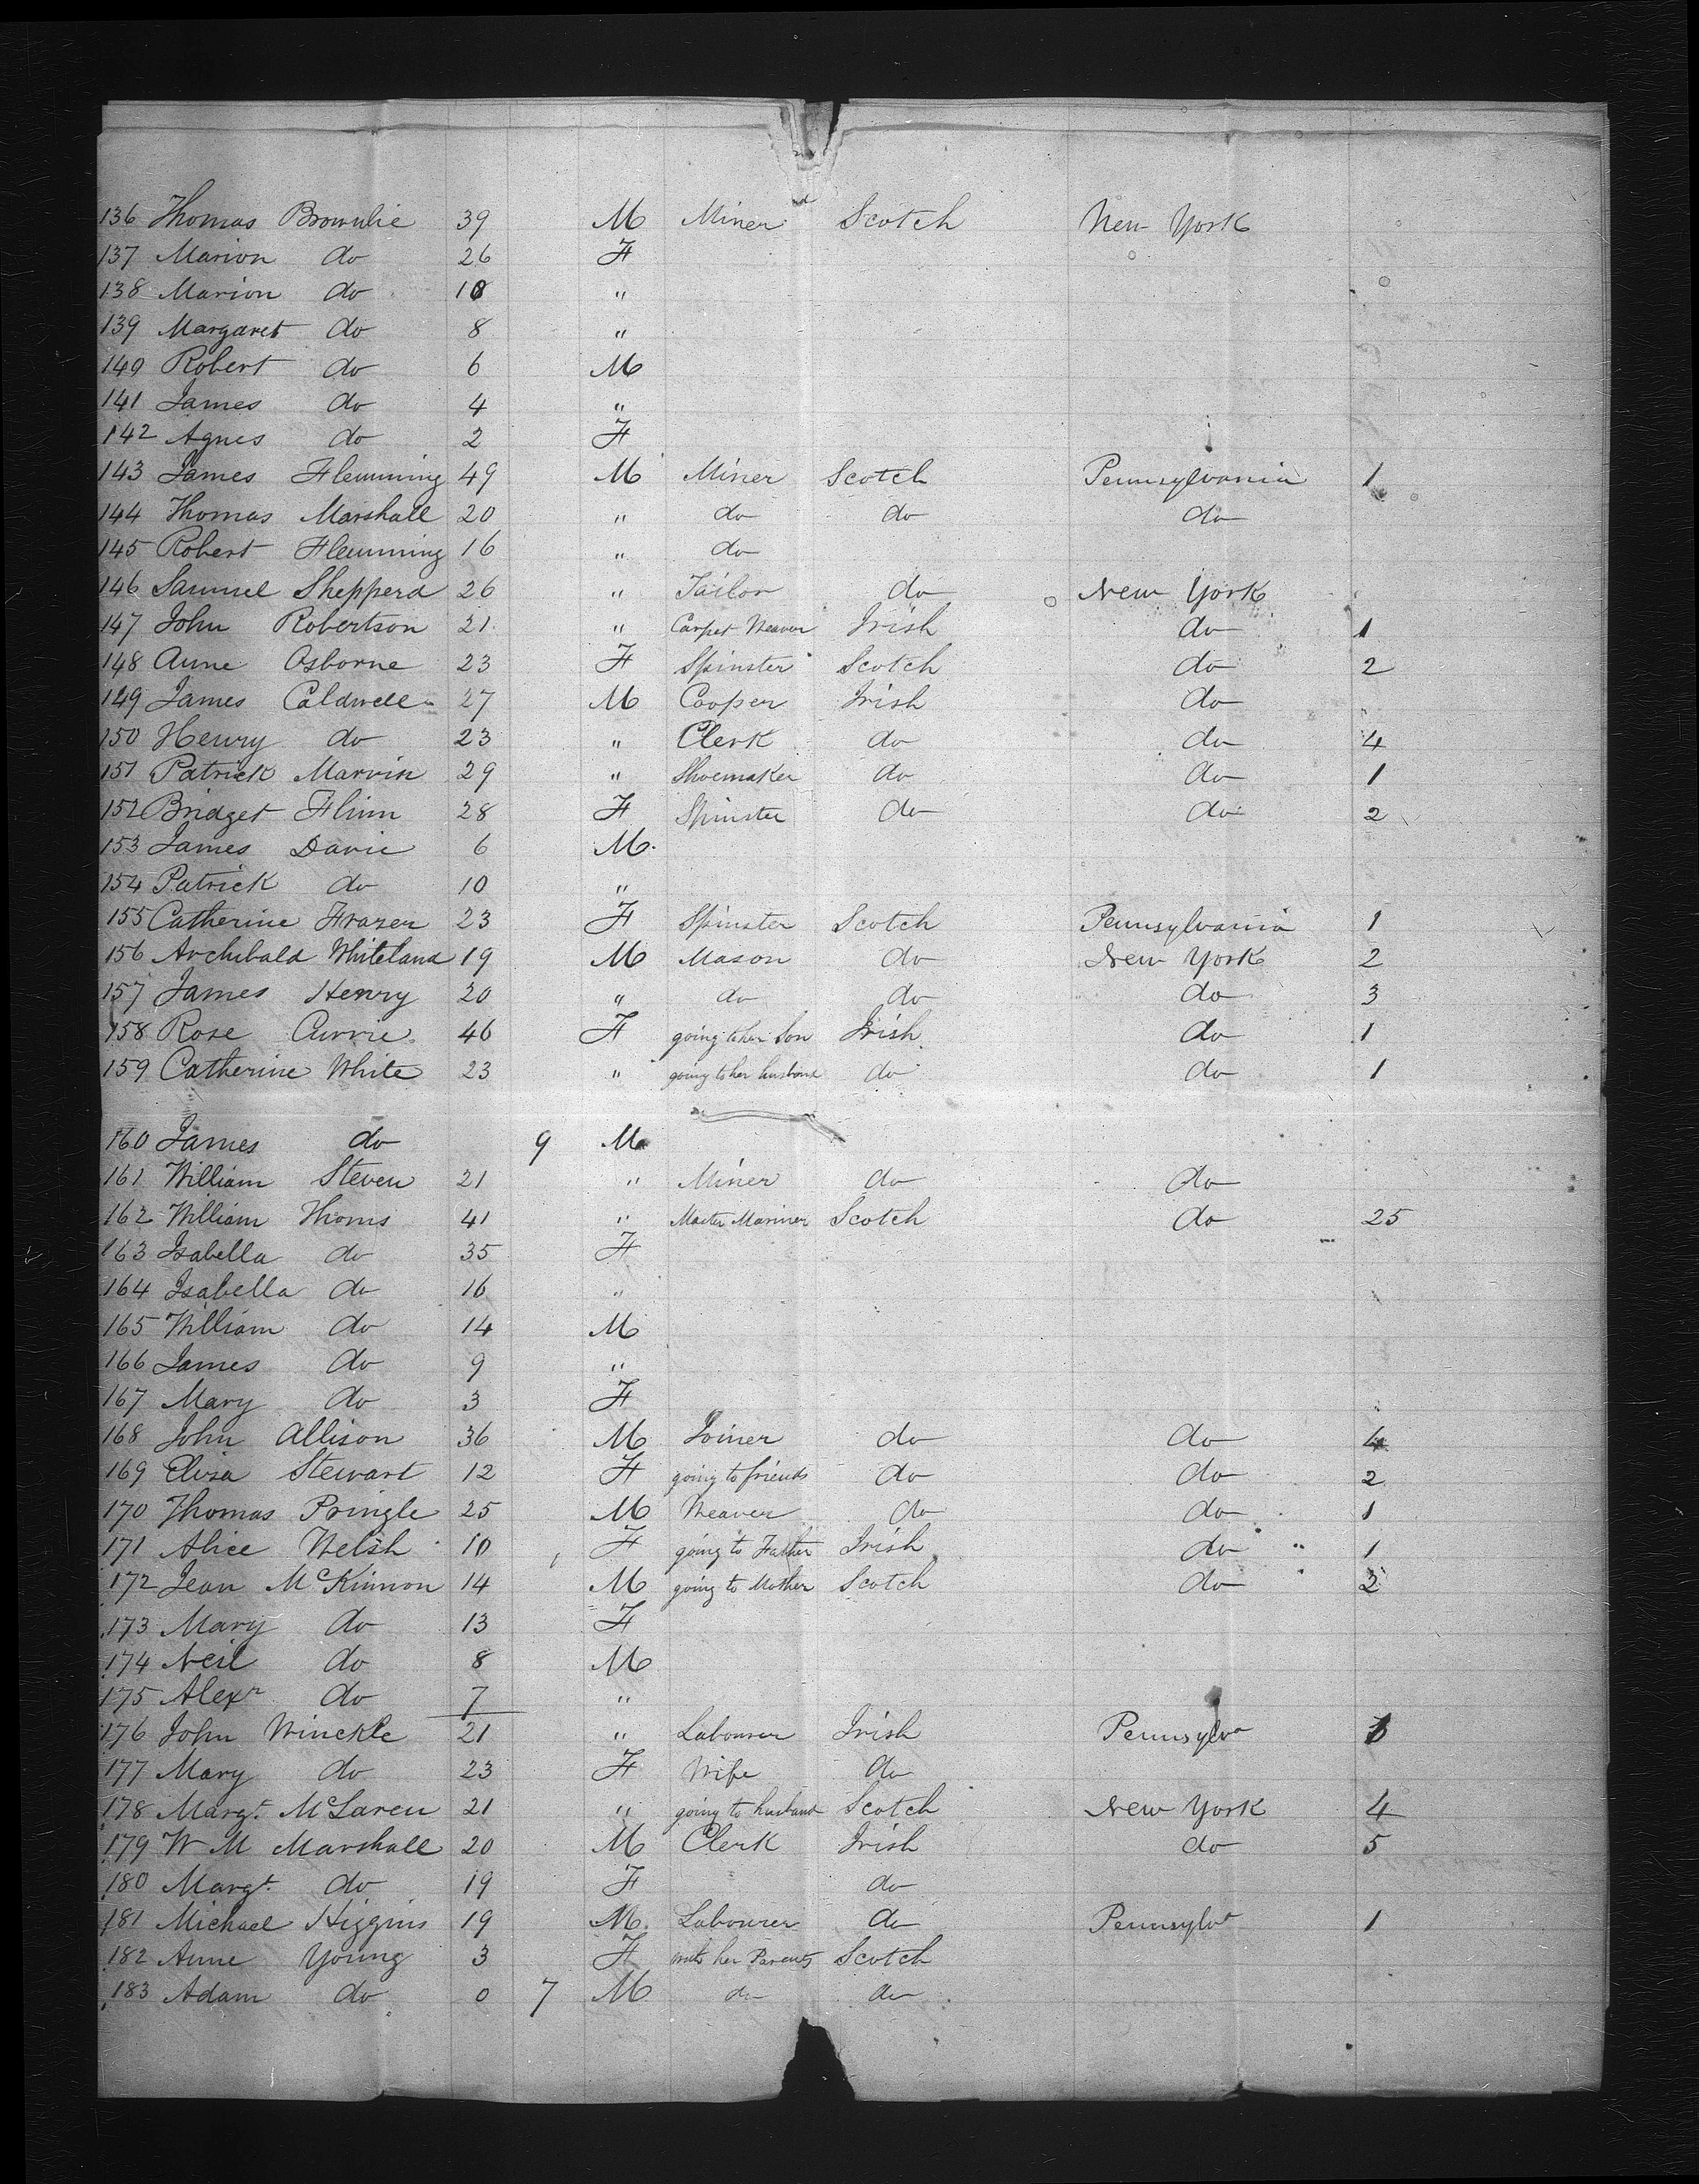 136 Thomas Brownlie 39 M Miner Scotch New York
137 Marion do 26 F
138 Marion do 10 "
139 Margaret do 8 "
140 Robert do 6 M
141 James do 4 "
142 Agnes do 2 F
143 James Flemming 49 M Miner Scotch Pennsylvania 1
144 Thomas Marshall 20 " do do do
145 Robert Flemming 16 " do
146 Samuel Shepperd 26 " Tailor do New York
147 John Robertson 21 " Carpet Weaver Irish do 1
148 Anne Osborne 23 F Spinster Scotch do 2
149 James Caldwell 27 M Cooper Irish do
150 Henry do 23 " Clerk do do 4
151 Patrick Marvin 29 " Shoemaker do do 1
152 Bridget Flinn 28 F Spinster do do 2
153 James Davie 6 M
154 Patrick do 10 "
155 Catherine Frazer 23 F Spinster Scotch Pennsylvania 1
156 Archibald Whitelaw 19 M Mason do New York 2
157 James Henry 20 " do do do 3
158 Rose Currie 46 F going to her Son Irish do 1
159 Catherine White 23 " going to her husband do do 1
160 James do 9 M
161 William Steven 21 " Miner do do
162 William Thoms 41 " Master Mariner Scotch do 25
163 Isabella do 35 F
164 Isabella do 16 "
165 William do 14 M
166 James do 9 "
167 Mary do 3 F
168 John Allison 36 M Joiner do do 4
169 Eliza Stewart 12 F going to friends do do 2
170 Thomas Pringle 25 M Weaver do do 1
171 Alice Welsh 10 F going to Father Irish do " 1
172 Jean McKinnon 14 M going to Mother Scotch do 2
173 Mary do 13 F
174 Neil do 8 M
175 Alexr do 7 "
176 John Winckle 21 " Labourer Irish Pennsylva
177 Mary do 23 F Wife do
178 Margt. McLaren 21 " going to husband Scotch New York 4
179 W M Marshall 20 M Clerk Irish do 5
180 Margt. do 19 F do
181 Michael Higgins 19 M. Labourer do Pennsylva 1
182 Anne Young 3 F with her Parents Scotch
183 Adam do 0 7 M do do